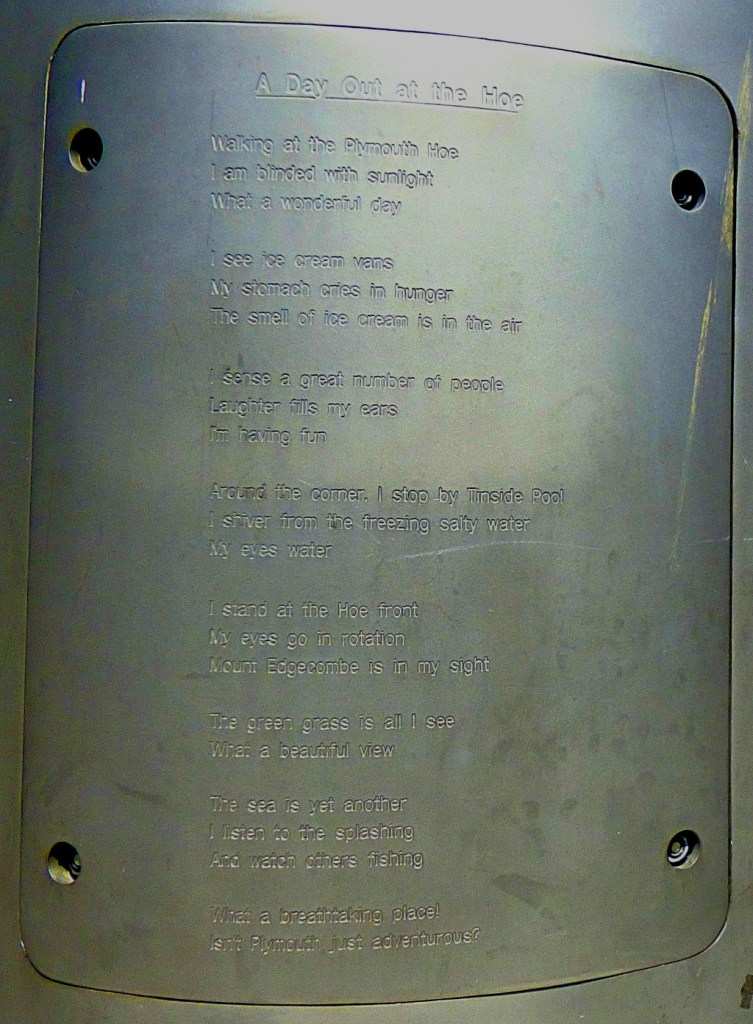 A Day Out at the Hoe
Walking at the Plymouth Hoe
I am blinded with sunlight
What a wonderful day
I see ice cream vans
My stomach cries in hunger
The smell of ice cream is in the air
I sense a great number of people
Laughter fills my ears
I'm having fun
Around the corner, I stop by Tinside Pool
I shiver from the freezing salty water
My eyes water
I stand at the Hoe front
My eyes go in rotation
Mount Edgecombe is in my sight
The green grass is all I see
What a beautiful view
The sea is yet another
I listen to the splashing
And watch others fishing
What a breathtaking place!
Isn't Plymouth just adventurous?